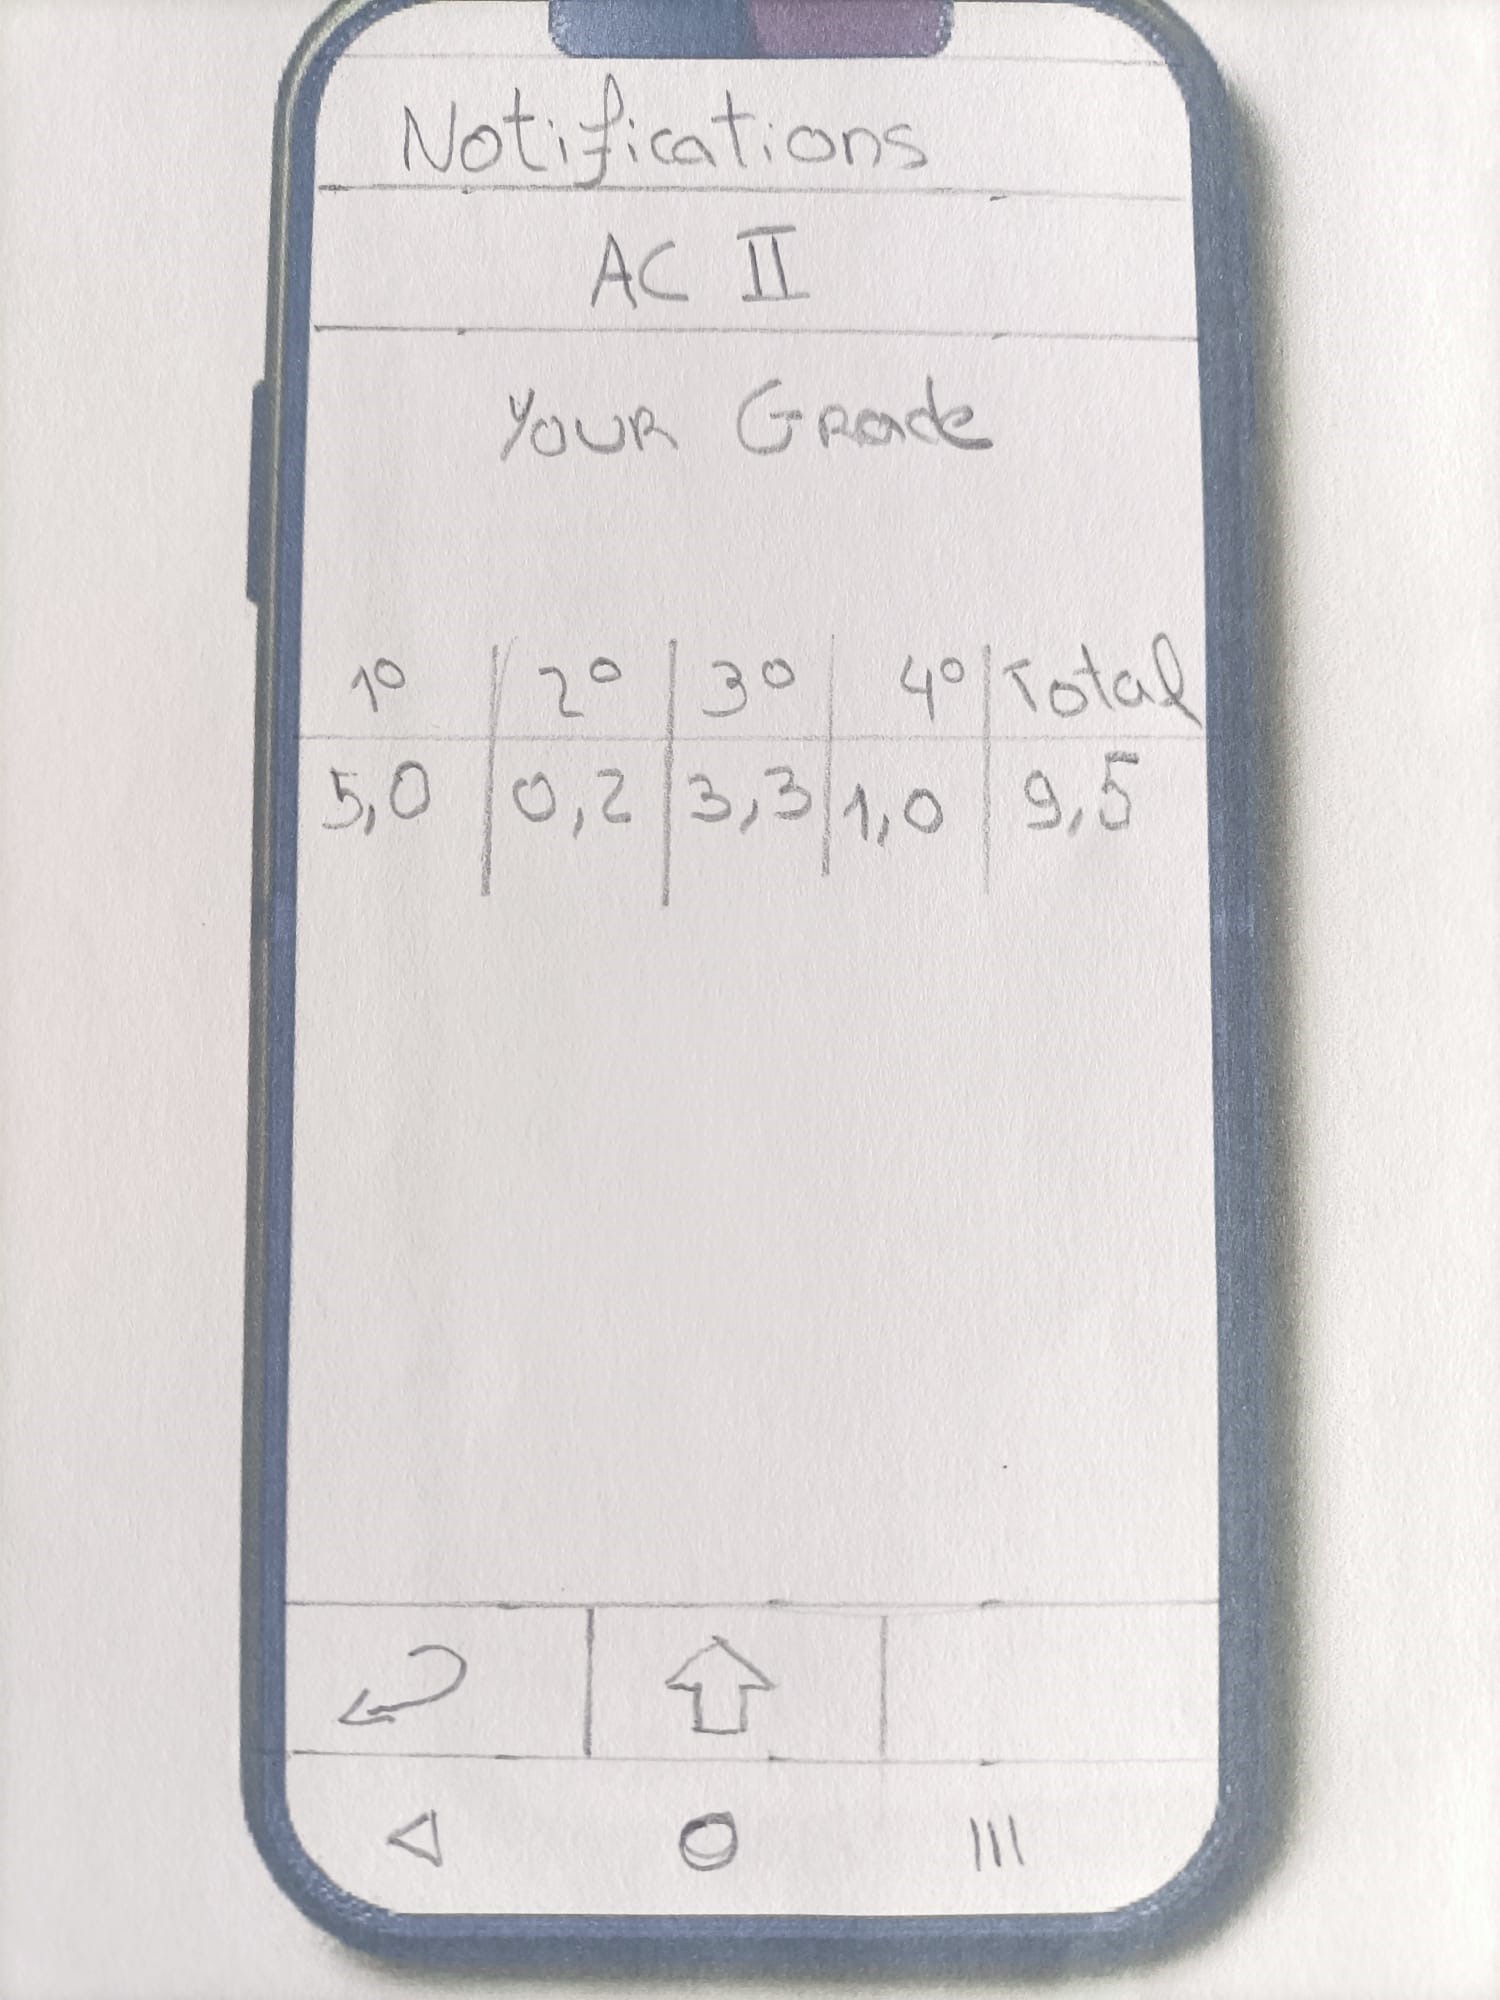 Notifications
AC II
YOUR Grade
1º 2º 3º 4º Total
5,0 0,2 3,3 1,0 9,5